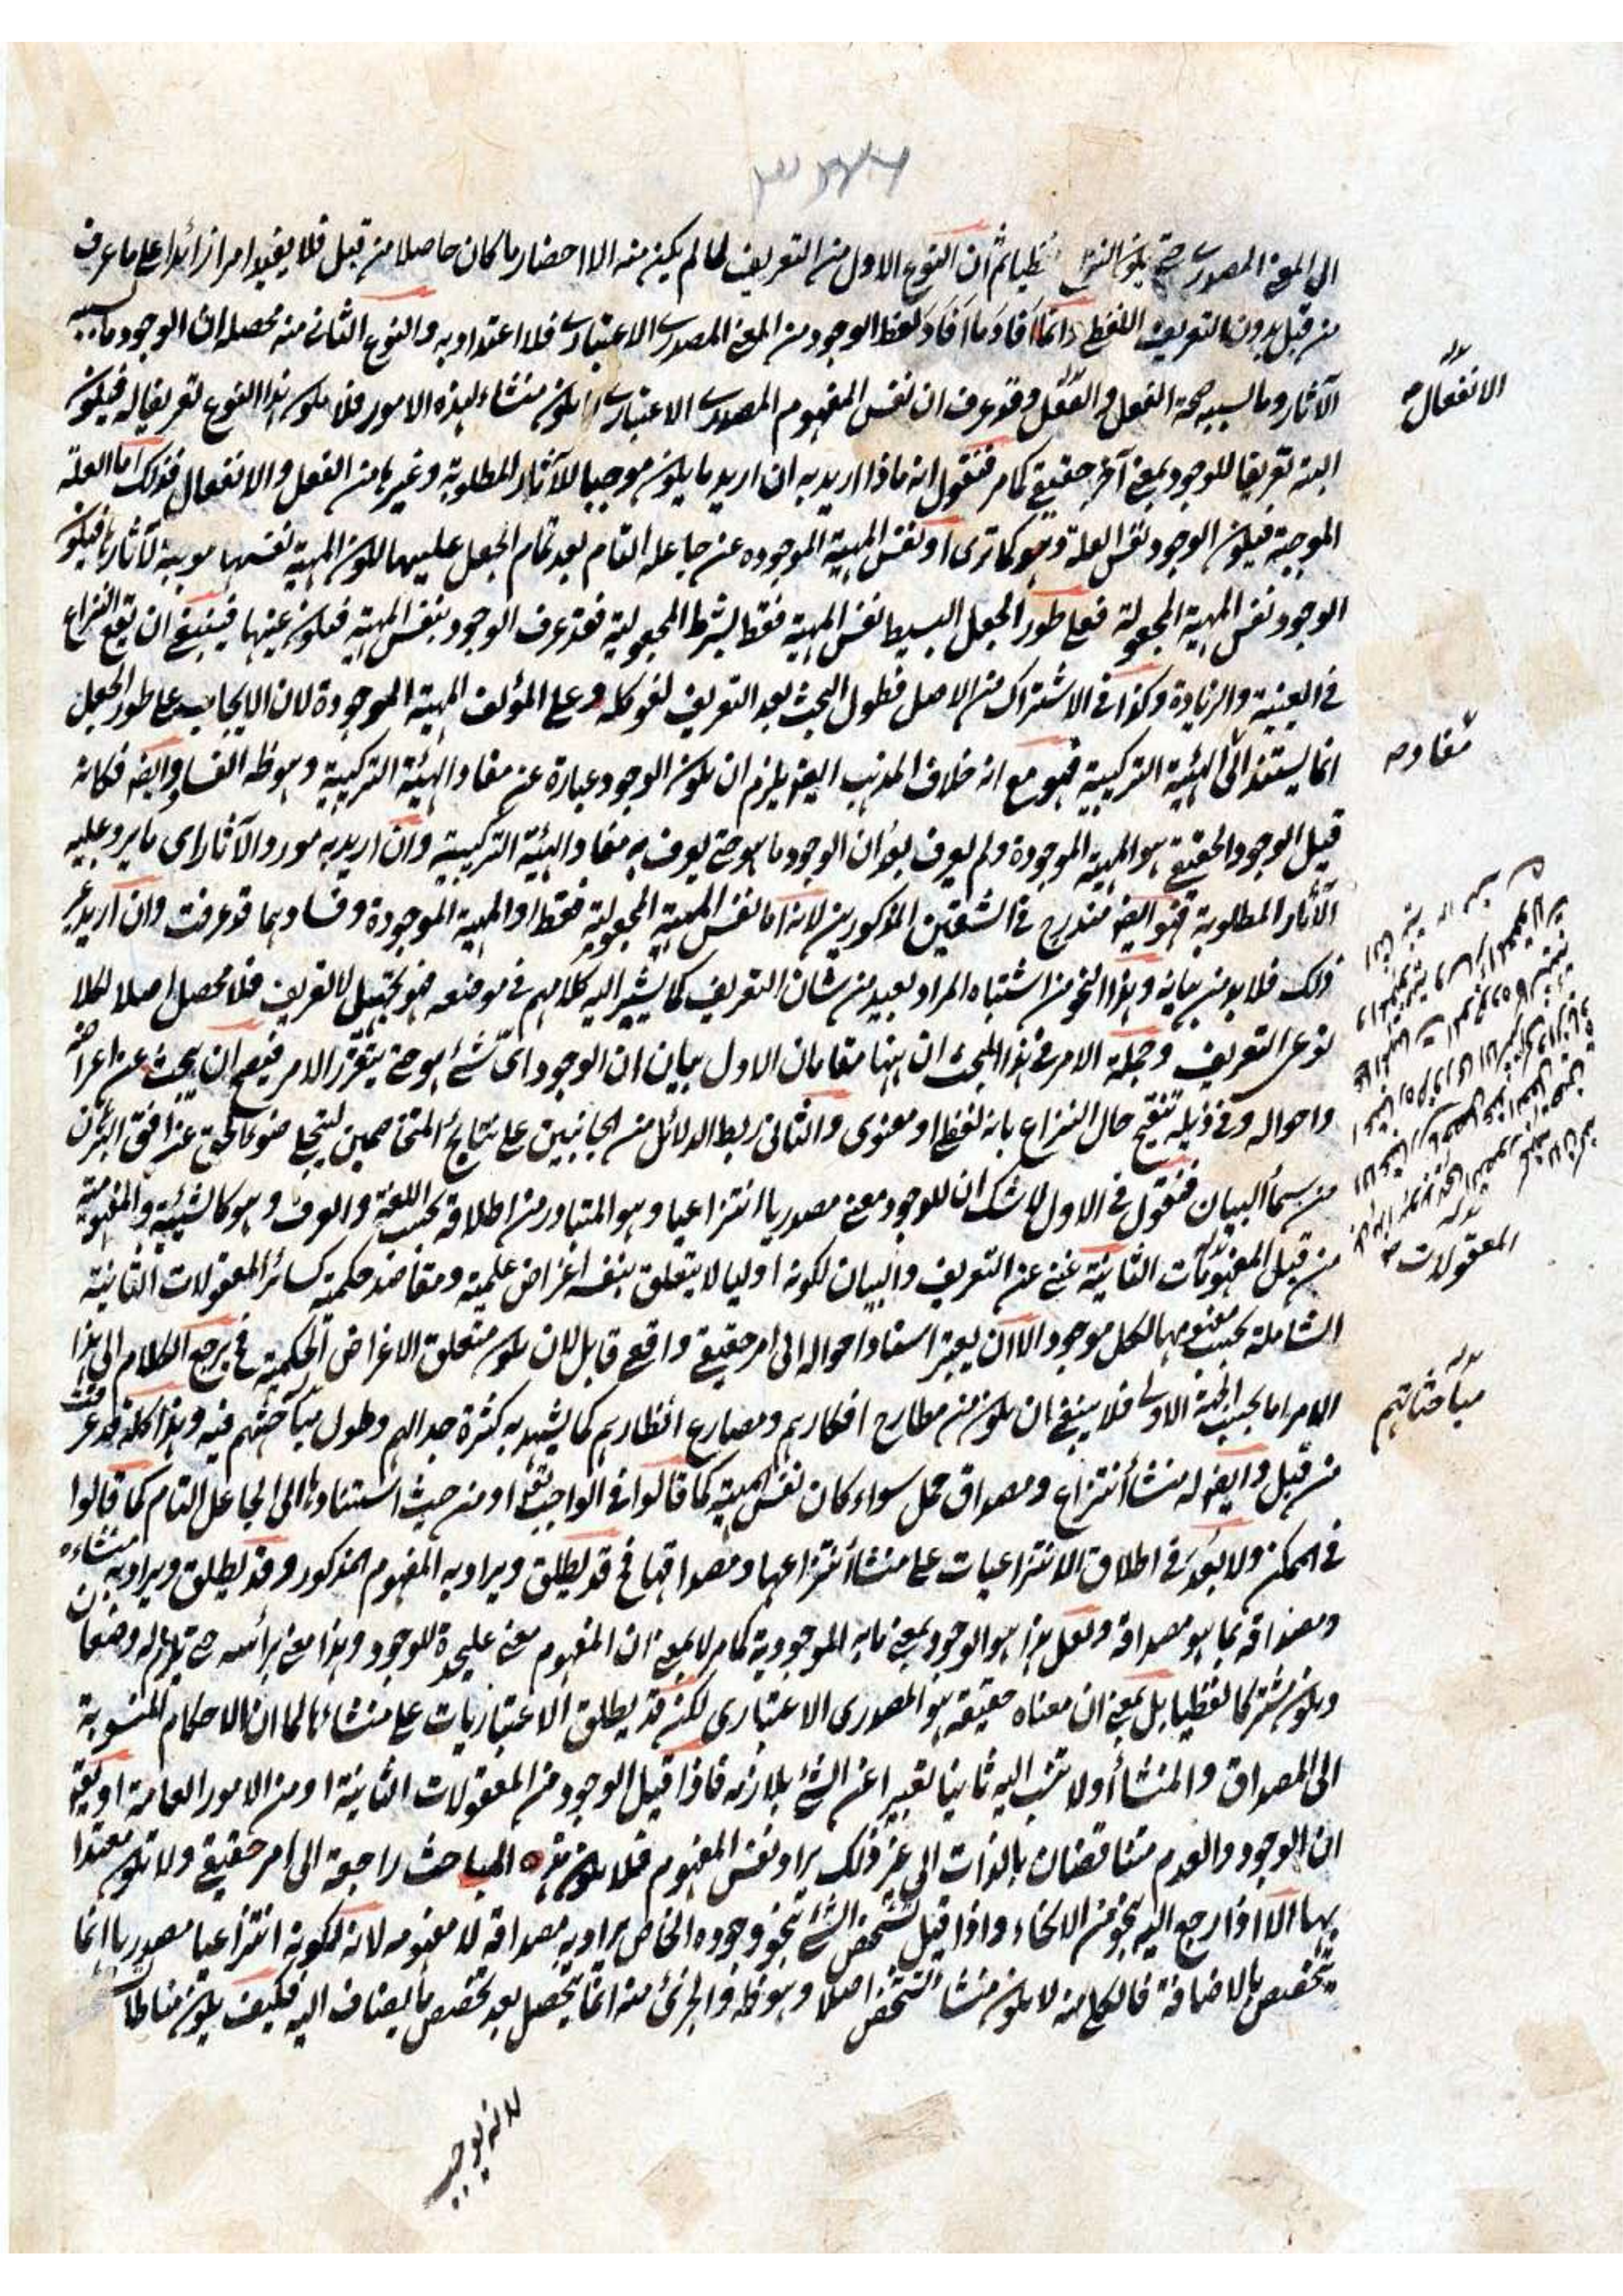 الى المعنى المصدرى حتى يكون النزاع لفظيا ثم ان النوع الاول من التعريف لما لم يكن منه الا احضار ما كان حاصلا من قبل فلا يفيد امرا زائدا على ما عرف
من قبل بدون التعريف اللفظى انما افاد ما افاد لفظ الوجود من المعنى المصدرى الاعتبارى فلا اعتداد به والنوع الثانى منه محصله ان الوجود ما بسببه
الآثار وما بسببه صحة الفعل و وقد عرف ان نفس المفهوم المصدرى الاعتبارى لا يكون منشاء لهذه الامور فلا يكون هذا النوع تعريفا له فيكون
البتة تعريفا للوجود بمعنى آخر حقيقى كما مر فنقول انه ماذا اريد به ان اريد ما يكون موجبا للآثار المطلوبة وغيرها من الفعل والانفعال فذلك اما العلة
الموجبة فيكون الوجود نفس العلة وهو كما ترى او نفس المهية الموجودة عن جاعله التام بعد تمام الجعل عليها لكون المهية نفسها موجبة لآثارها فيكون
الوجود نفس المهية المجعولة فعلى طور الجعل البسيط نفس المهية فقط بشرط المجعولية فقد عرف الوجود بنفس المهية فيكون عينها فينبغى ان يقع النزاع
فى العينية والزيادة وكذا فى الاشتراك من الاصل فطول البحث بعد التعريف لغو كله وعلى المؤلف المهية الموجودة لان الايجاب على طور الجعل
انما يستند الى الهيئة التركيبية فهو مع انه خلاف المذهب ايضا يلزم ان يكون الوجود عبارة عن مفاد الهيئة التركيبية وهو ظه الفساد وايضا فكانه
قيل الوجود الحقيقى هو المهية الموجودة ولم يعرف بعد ان الوجود ما هو حتى يعرف به مفاد الهيئة التركيبية وان اريد به مورد الآثار اى ما يرد عليه
الآثار المطلوبة فهو ايضا مندرج فى الشقين المذكورين لانه اما نفس المهية المجعولة فقط او المهية الموجودة وفسادهما قد عرفت وان اريد غير
ذلك فلا بد من بيانه وهذا النحو من اشتباه المراد بعيد من شان التعريف كما يشير اليه كلامهم فى موضعه فهو تجهيل لا تعريف فلا محصل اصلا لكلا
نوعى التعريف وجملة الامر فى هذا المبحث ان ههنا مقامان الاول بيان ان الوجود اى شئ هو حتى يتقرر الامر فيصح ان يبحث عن اعراضه
واحواله وفى ذيله تنقيح حال النزاع بانه لفظى او معنوى والثانى ربط الدلائل من الجانبين على نتايج المتخاصمين لينجلى ضوء الحق عن افق
من سماء البيان فنقول فى الاول لا شك ان للوجود معنى مصدريا انتزاعيا وهو المتبادر من اطلاقه بحسب اللغة والعرف وهو كالشيئية والمفهومية
من قبل المفهومات الثانية غنى عن التعريف والبيان لكونه اوليا لا يتعلق بنفسه اغراض علمية ومقاصد حكمية كسائر المعقولات الثانية
الشاملة بحسب مفهومها لكل موجود الا ان يعتبر اسناد احواله الى امر حقيقى واقعى قابل لان يكون متعلق الاغراض الحكمية فح يرجع الكلام الى هذا
الامر اما بحسب الجهة الاولى فلا ينبغى ان يكون من مطارح افكارهم ومصارع انظارهم كما يشهد به كثرة جدالهم وطول مباحثهم فيه وهذا كله قد عرفت
من قبل وايضا له منشأ انتزاع ومصداق حمل سواء كان نفس المهية كما قالوا فى الواجب تعالى او من حيث استنادها الى الجاعل التام كما قالوا
فى الممكن ولا بعد فى اطلاق الانتزاعيات على منشأ انتزاعها ومصداقها فح قد يطلق ويراد به المفهوم المذكور وقد يطلق ويراد به منشاءه
ومصداقه بما هو مصداقه ولعل هذا هو الوجود بمعنى ما به الموجودية كما مر لا بمعنى ان المفهوم معنى عليحدة للوجود وهذا معنى برأسه حتى يلزم له وضعان
ويكون مشتركا لفظيا بل بمعنى ان معناه حقيقة هو المصدرى الاعتبارى لكن قد يطلق الاعتباريات على منشاءها لما ان الاحكام المنسوبة
الى المصداق والمنشأ اولا تنسب اليه ثانيا تعبيرا عن الشئ بلازمه فاذا قيل الوجود من المعقولات الثانية او من الامور العامة او يقال
ان الوجود والعدم متناقضان بالذات الى غير ذلك يراد نفس المفهوم فلا يكون هذه المباحث راجعة الى امر حقيقى ولا تكون معتدا
بها الا اذا رجع اليه بنحو من الانحاء واذا قيل تشخص الشئ بنحو وجوده الخاص يراد به مصداقه لا مفهومه لانه لكونه انتزاعيا مصدريا انما
يتخصص بالاضافة فالكلى منه لا يكون منشأ التشخص اصلا وهو ظه والجزئى منه انما يحصل بعد تخصص ما يضاف اليه فكيف يكون مناطا
الانفعال صح
مفاد صح
المعقولات صح
مباحثاتهم
لانه يوجب